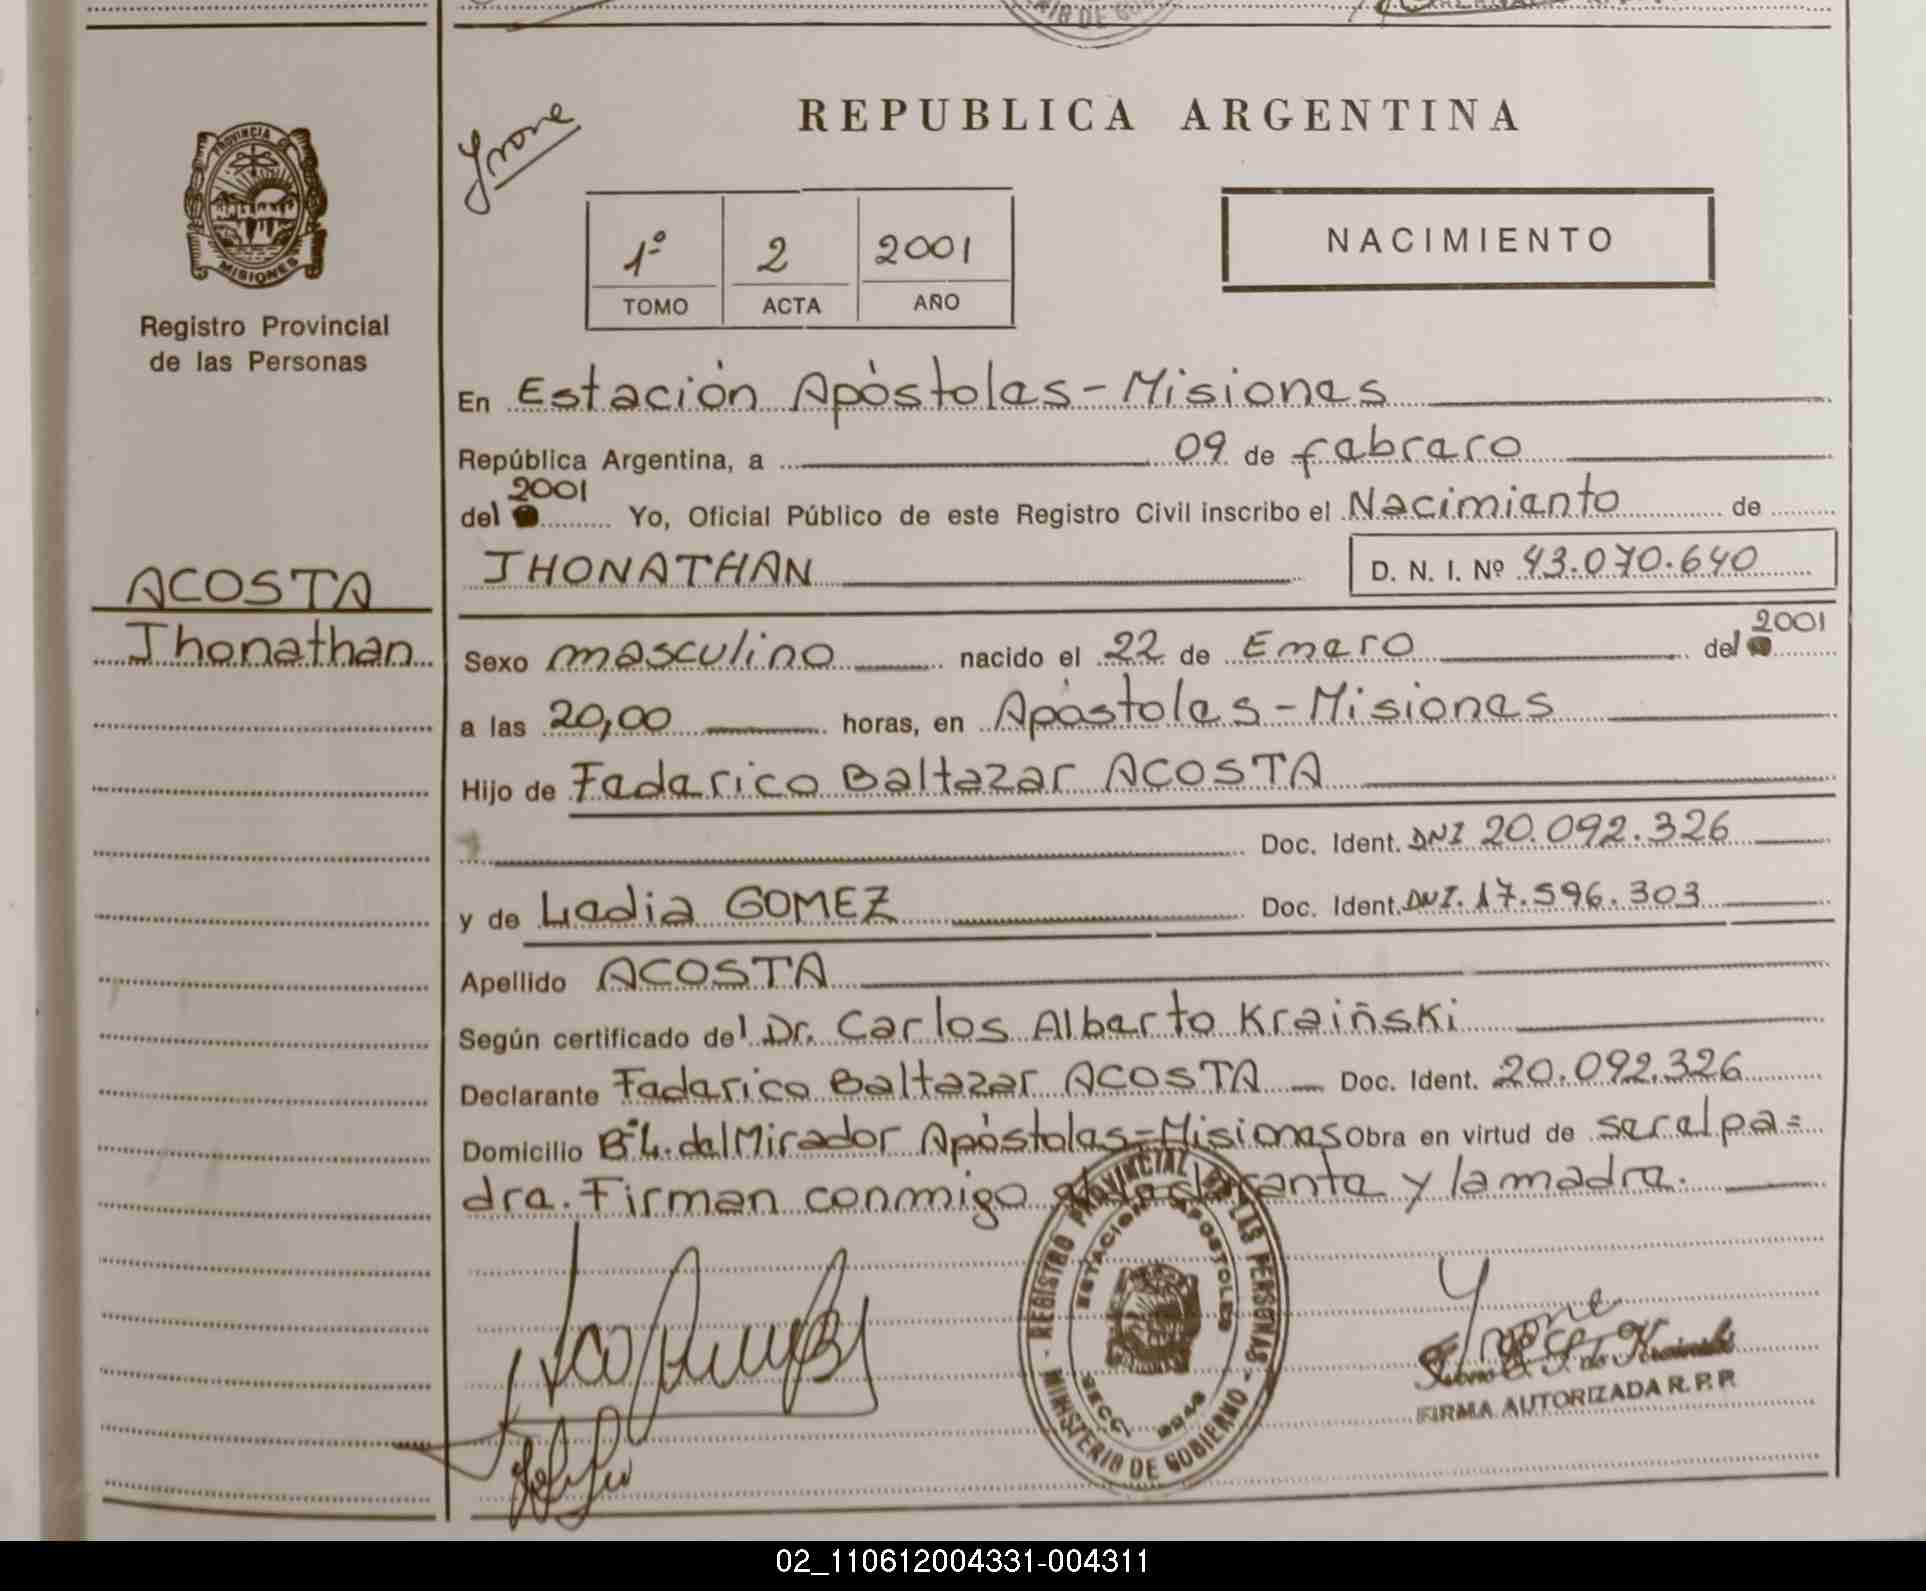 REPUBLICA ARGENTINA
PROVINCIA
MISIONES
Registro Provincial
de las Personas
1º 2 2001
TOMO ACTA AÑO
NACIMIENTO
En Estación Apóstoles - Misiones
República Argentina, a 09 de febrero
del 2001 Yo, Oficial Público de este Registro Civil inscribo el Nacimiento de
JHONATHAN D. N. I. Nº 43.070.640
ACOSTA
Jhonathan
Sexo masculino nacido el 22 de Enero del 2001
a las 20,00 horas, en Apóstoles - Misiones
Hijo de Federico Baltazar ACOSTA
Doc. Ident. DNI 20.092.326
y de Ledia GOMEZ Doc. Ident. DNI. 17.596.303
Apellido ACOSTA
Según certificado del Dr. Carlos Alberto Kraiñski
Declarante Federico Baltazar ACOSTA Doc. Ident. 20.092.326
Domicilio Bº L. del Mirador Apóstoles - Misiones Obra en virtud de ser el pa=
dre. Firman conmigo el declarante y la madre.
REGISTRO PROVINCIAL DE LAS PERSONAS
MINISTERIO DE GOBIERNO
ESTACION APOSTOLES
SECC.
FIRMA AUTORIZADA R. P. P.
02_110612004331-004311